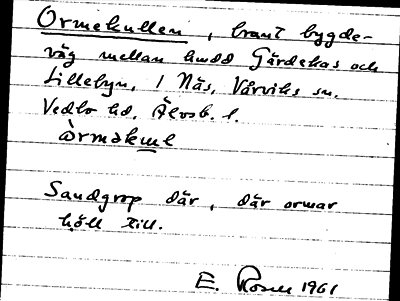 Ormekullen, brant bygde-
väg mellan hmdd Gärdekas och
Lillebyn, i Näs, Vårviks sn.
Vedbo hd. Älvsb. l.
òrmakul
Sandgrop där, där ormar
höll till.
E. Rosell 1961